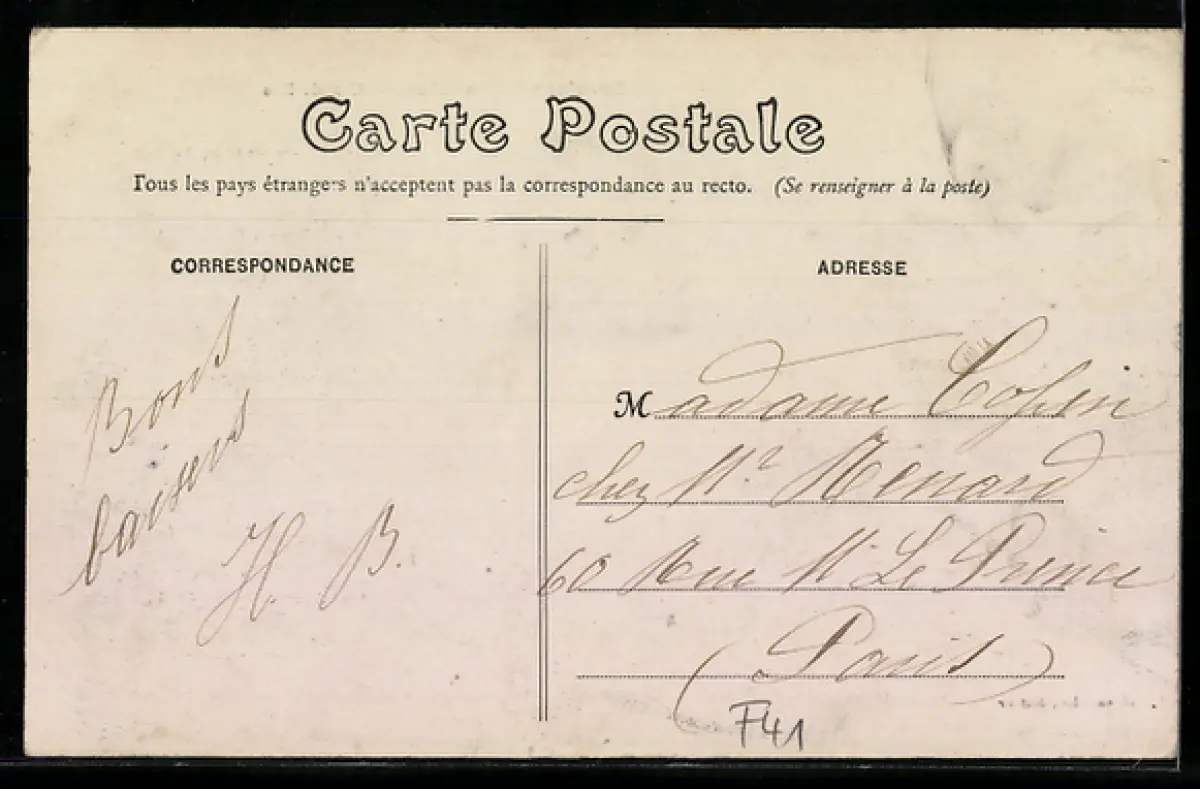 Carte Postale
Tous les pays étrangers n'acceptent pas la correspondance au recto. (Se renseigner à la poste)
CORRESPONDANCE
Bons
baisers
H. B.
ADRESSE
Madame
chez Mr Ménard
60 Rue Mr Le Prince
(Paris)
F41